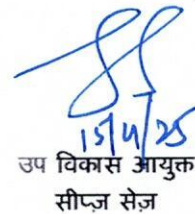 15/4/25
उप विकास आयुक्त
सीप्ज़ सेज़